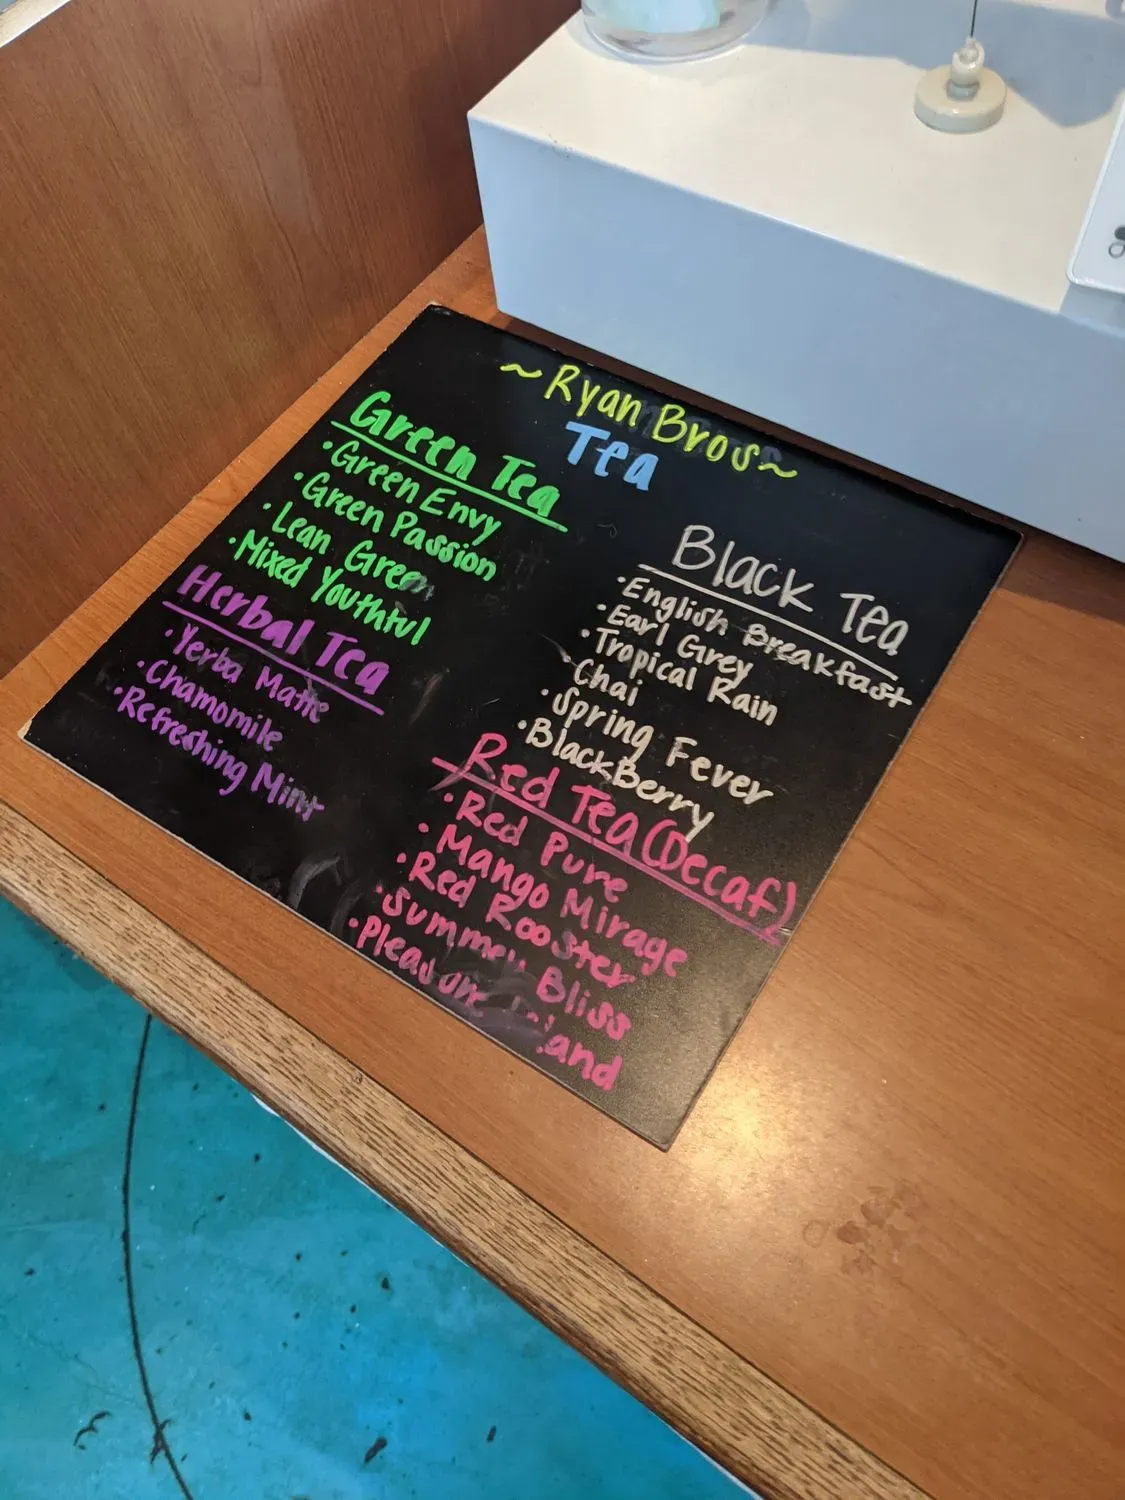 ~Ryan Bros~
Tea
Green Tea
• Green Envy
• Green Passion
• Lean Green
• Mixed Youthful
Herbal Tea
• Yerba Matte
• Chamomile
• Refreshing Mint
Black Tea
• English Breakfast
• Earl Grey
• Tropical Rain
• Chai
• Spring Fever
• BlackBerry
Red Tea (Decaf)
• Red Pure
• Mango Mirage
• Red Rooster
• Summer Bliss
• Pleasure